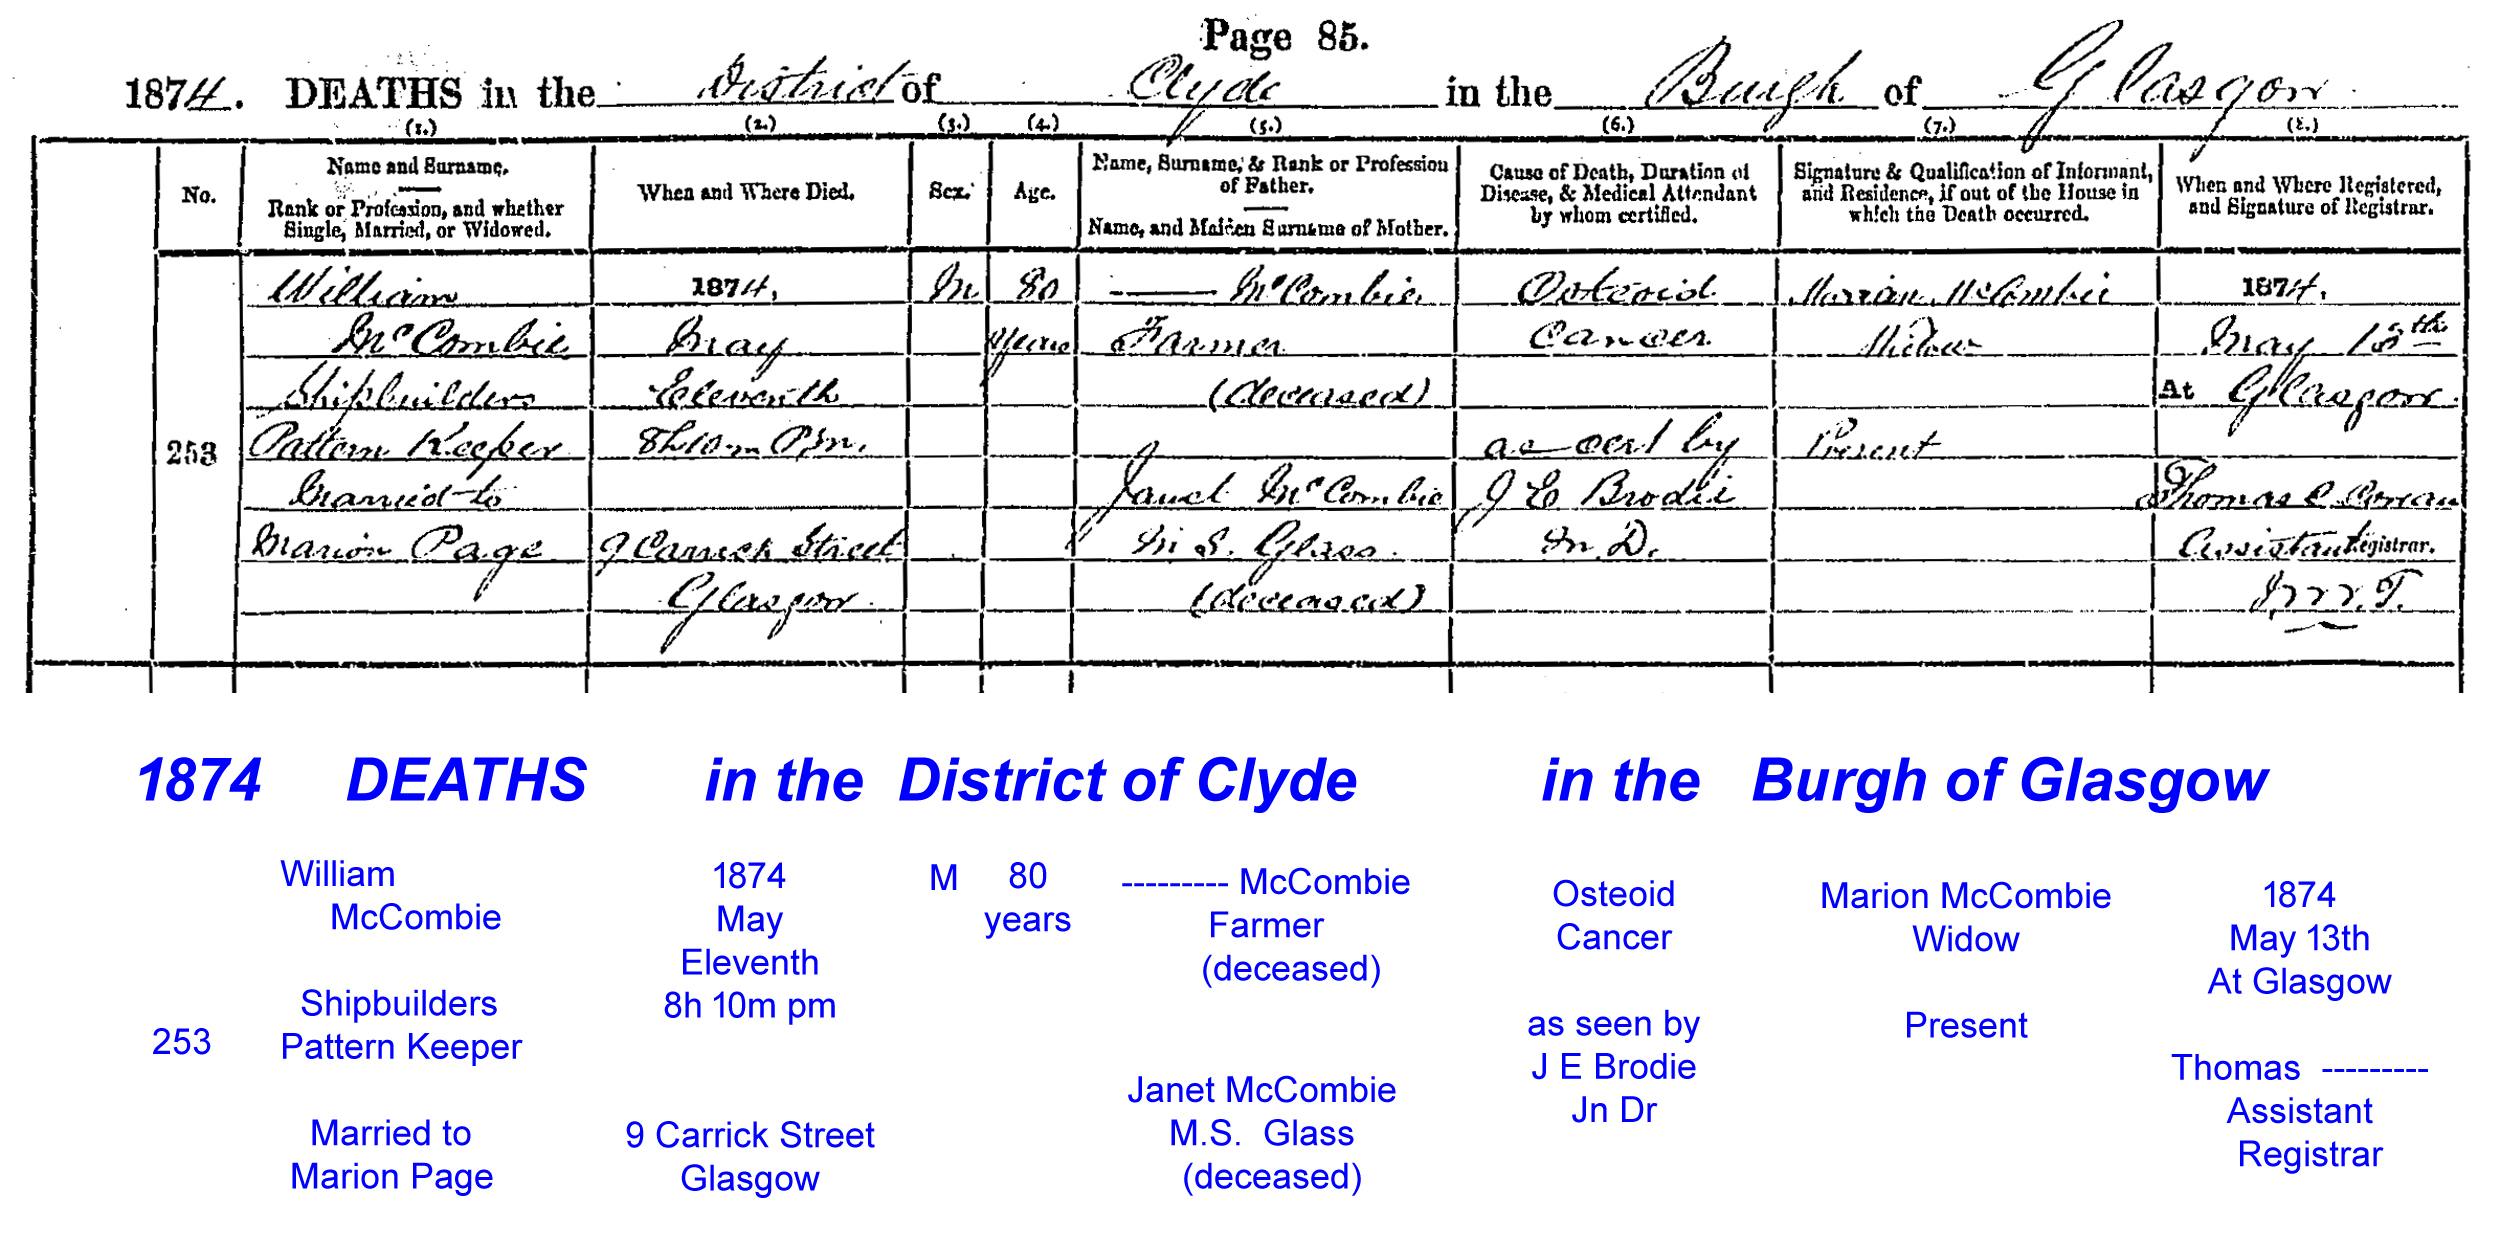 Page 85.
1874. DEATHS in the District of Clyde in the Burgh of Glasgow
(1.) (2.) (3.) (4.) (5.) (6.) (7.) (8.)
No.
Name and Surname.
Rank or Profession, and whether
Single, Married, or Widowed.
When and Where Died.
Sex.
Age.
Name, Surname, & Rank or Profession
of Father.
Name, and Maiden Surname of Mother.
Cause of Death, Duration of
Disease, & Medical Attendant
by whom certified.
Signature & Qualification of Informant,
and Residence, if out of the House in
which the Death occurred.
When and Where Registered,
and Signature of Registrar.
253
William
McCombie
Shipbuilders
Pattern Keeper
Married to
Marion Page
1874,
May
Eleventh
8h 10m P.m.
9 Carrick Street
Glasgow
M
80
years
—— McCombie
Farmer
(deceased)
Janet McCombie
M.S. Glass
(deceased)
Osteoid
Cancer
as cert by
J E Brodie
M D.
Marion McCombie
Widow
Present
1874.
May 13th
At Glasgow.
Thomas C
Assistant Registrar.
1874 DEATHS in the District of Clyde in the Burgh of Glasgow
253
William
McCombie
Shipbuilders
Pattern Keeper
Married to
Marion Page
1874
May
Eleventh
8h 10m pm
9 Carrick Street
Glasgow
M
80
years
--------- McCombie
Farmer
(deceased)
Janet McCombie
M.S. Glass
(deceased)
Osteoid
Cancer
as seen by
J E Brodie
Jn Dr
Marion McCombie
Widow
Present
1874
May 13th
At Glasgow
Thomas ---------
Assistant
Registrar